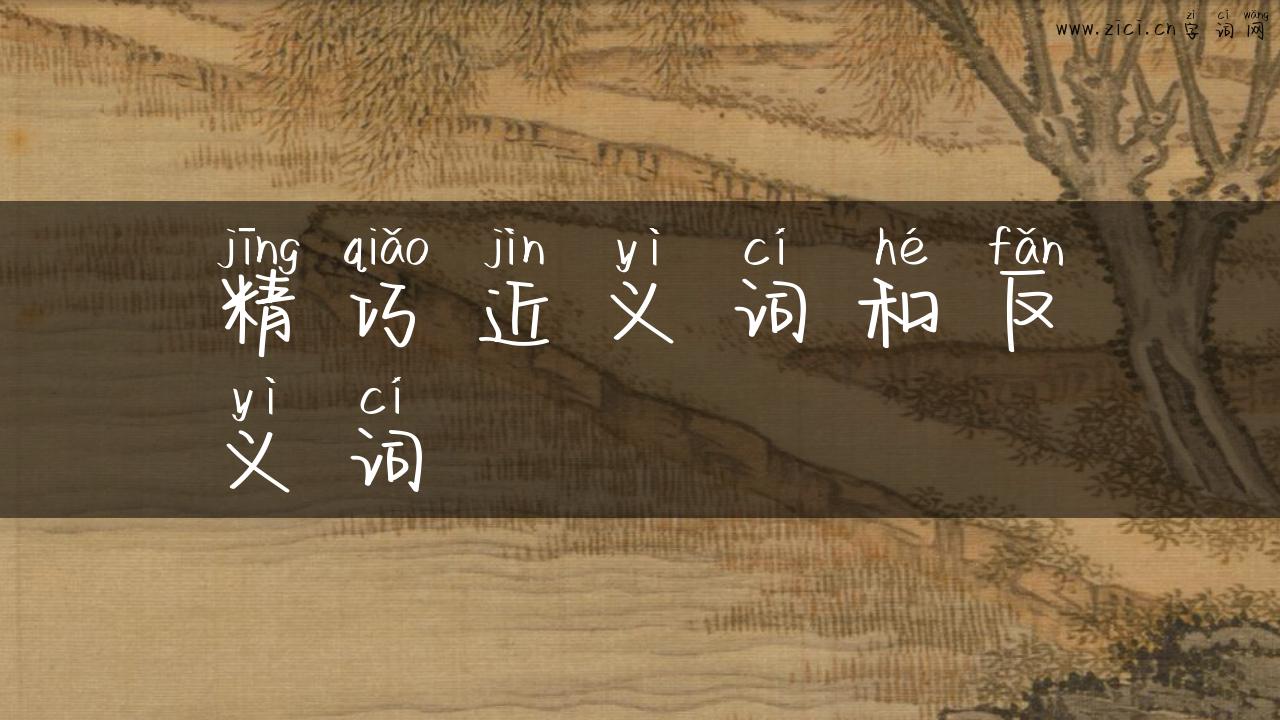 zì cí wǎng
www.zici.cn 字 词 网
jīng qiǎo jìn yì cí hé fǎn
精 巧 近 义 词 和 反
yì cí
义 词